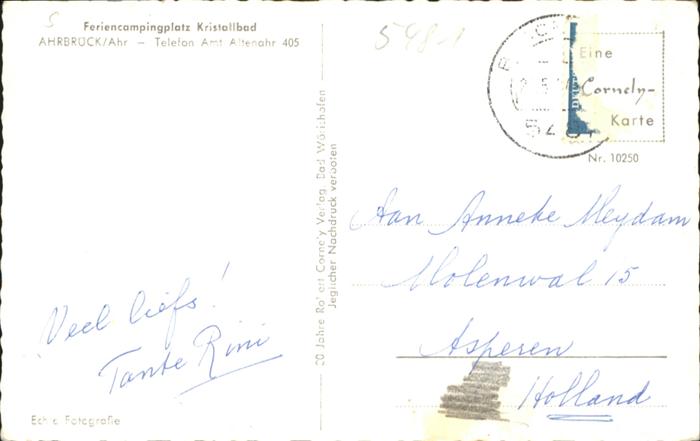 Feriencampingplatz Kristallbad
AHRBRÜCK/Ahr — Telefon Amt Altenahr 405
5481
Eine
Cornely-
Karte
Nr. 10250
20 Jahre Robert Cornely Verlag, Bad Wörishofen
Jeglicher Nachdruck verboten
Aan Anneke Meydam
Molenwal 15
Asperen
Holland
Veel liefs!
Tante Rini
Echte Fotografie